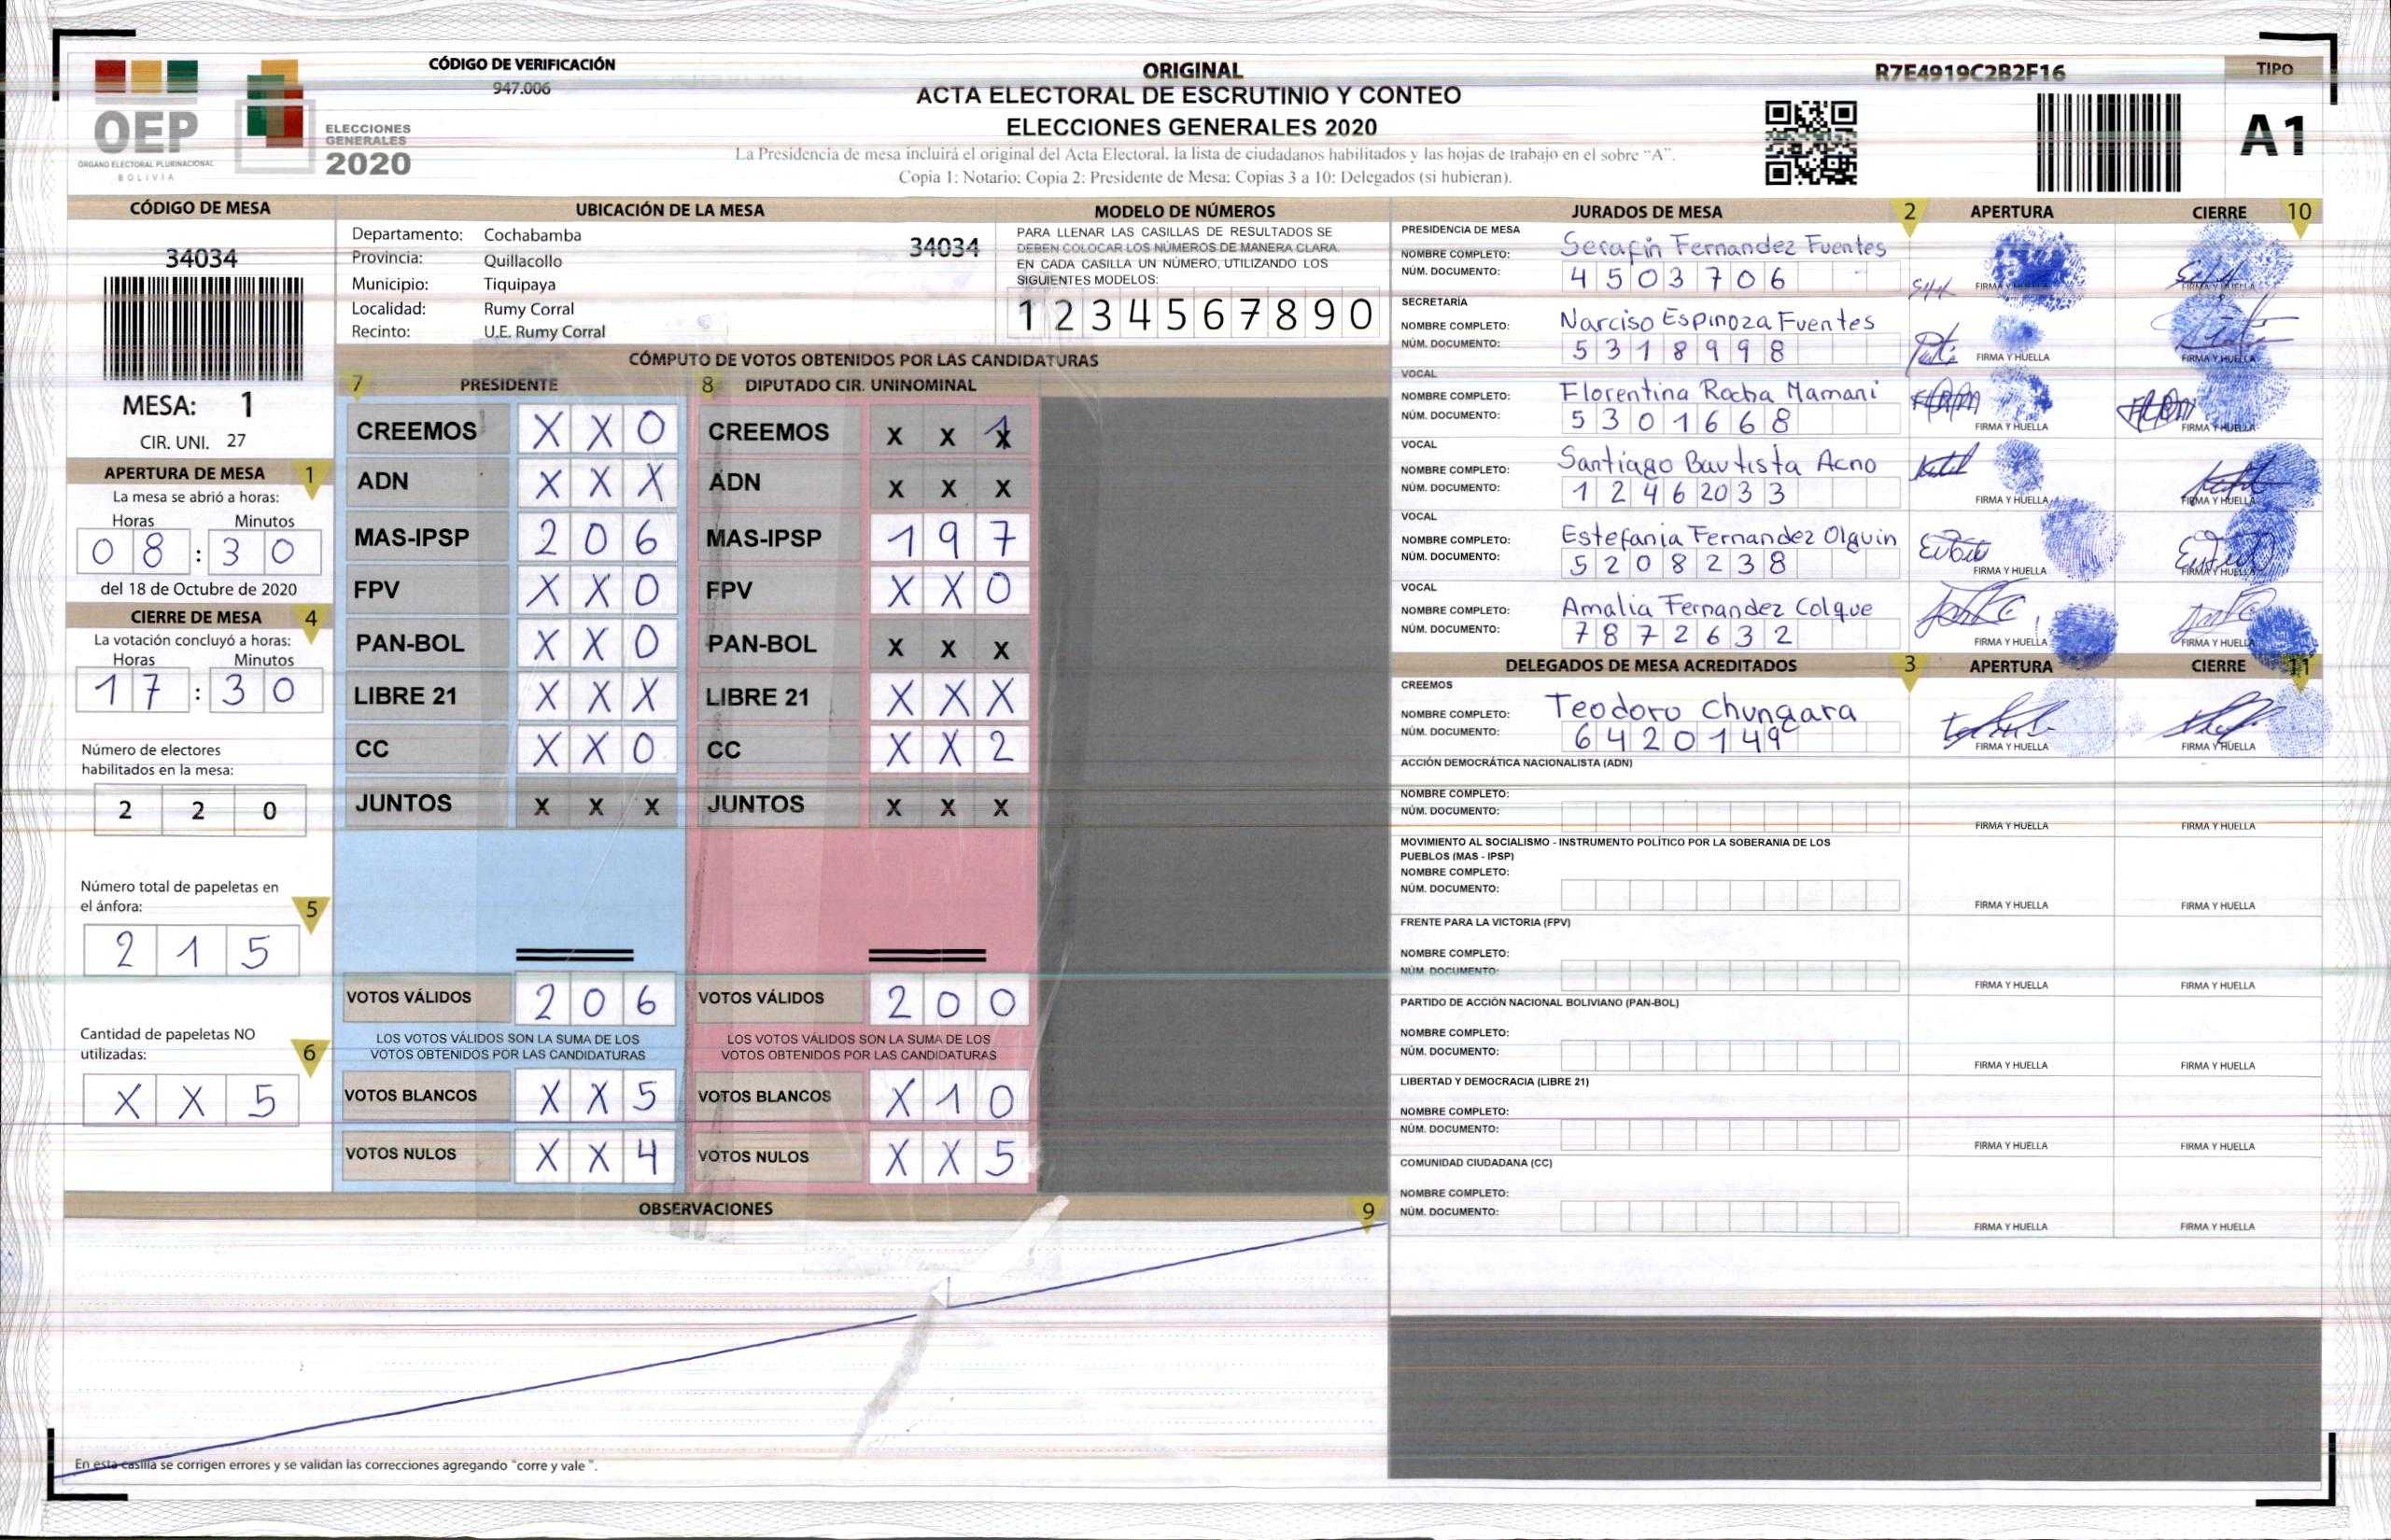 CÓDIGO DE VERIFICACIÓN
947.006
OEP
ÓRGANO ELECTORAL PLURINACIONAL
BOLIVIA
ELECCIONES
GENERALES
2020
ORIGINAL
ACTA ELECTORAL DE ESCRUTINIO Y CONTEO
ELECCIONES GENERALES 2020
La Presidencia de mesa incluirá el original del Acta Electoral, la lista de ciudadanos habilitados y las hojas de trabajo en el sobre “A”.
Copia 1: Notario; Copia 2: Presidente de Mesa; Copias 3 a 10: Delegados (si hubieran).
R7E4919C2B2F16
TIPO
A1
CÓDIGO DE MESA
34034
MESA: 1
CIR. UNI. 27
APERTURA DE MESA 1
La mesa se abrió a horas:
Horas Minutos
0 8 : 3 0
del 18 de Octubre de 2020
CIERRE DE MESA 4
La votación concluyó a horas:
Horas Minutos
1 7 : 3 0
Número de electores
habilitados en la mesa:
2 2 0
Número total de papeletas en
el ánfora: 5
2 1 5
Cantidad de papeletas NO
utilizadas: 6
X X 5
UBICACIÓN DE LA MESA
Departamento: Cochabamba
34034
Provincia: Quillacollo
Municipio: Tiquipaya
Localidad: Rumy Corral
Recinto: U.E. Rumy Corral
MODELO DE NÚMEROS
PARA LLENAR LAS CASILLAS DE RESULTADOS SE
DEBEN COLOCAR LOS NÚMEROS DE MANERA CLARA.
EN CADA CASILLA UN NÚMERO, UTILIZANDO LOS
SIGUIENTES MODELOS:
1 2 3 4 5 6 7 8 9 0
CÓMPUTO DE VOTOS OBTENIDOS POR LAS CANDIDATURAS
7 PRESIDENTE 8 DIPUTADO CIR. UNINOMINAL
CREEMOS X X 0 CREEMOS X X 1
ADN X X X ADN X X X
MAS-IPSP 2 0 6 MAS-IPSP 1 9 7
FPV X X 0 FPV X X 0
PAN-BOL X X 0 PAN-BOL X X X
LIBRE 21 X X X LIBRE 21 X X X
CC X X 0 CC X X 2
JUNTOS X X X JUNTOS X X X
VOTOS VÁLIDOS 2 0 6 VOTOS VÁLIDOS 2 0 0
LOS VOTOS VÁLIDOS SON LA SUMA DE LOS LOS VOTOS VÁLIDOS SON LA SUMA DE LOS
VOTOS OBTENIDOS POR LAS CANDIDATURAS VOTOS OBTENIDOS POR LAS CANDIDATURAS
VOTOS BLANCOS X X 5 VOTOS BLANCOS X 1 0
VOTOS NULOS X X 4 VOTOS NULOS X X 5
OBSERVACIONES 9
En esta casilla se corrigen errores y se validan las correcciones agregando "corre y vale ".
JURADOS DE MESA 2 APERTURA CIERRE 10
PRESIDENCIA DE MESA
NOMBRE COMPLETO: Serafin Fernandez Fuentes
NÚM. DOCUMENTO: 4503706
FIRMA Y HUELLA FIRMA Y HUELLA
SECRETARÍA
NOMBRE COMPLETO: Narciso Espinoza Fuentes
NÚM. DOCUMENTO: 5318998
FIRMA Y HUELLA FIRMA Y HUELLA
VOCAL
NOMBRE COMPLETO: Florentina Rocha Mamani
NÚM. DOCUMENTO: 5301668
FIRMA Y HUELLA FIRMA Y HUELLA
VOCAL
NOMBRE COMPLETO: Santiago Bautista Acno
NÚM. DOCUMENTO: 12462033
FIRMA Y HUELLA FIRMA Y HUELLA
VOCAL
NOMBRE COMPLETO: Estefania Fernandez Olguin
NÚM. DOCUMENTO: 5208238
FIRMA Y HUELLA FIRMA Y HUELLA
VOCAL
NOMBRE COMPLETO: Amalia Fernandez Colque
NÚM. DOCUMENTO: 7872632
FIRMA Y HUELLA FIRMA Y HUELLA
DELEGADOS DE MESA ACREDITADOS 3 APERTURA CIERRE 11
CREEMOS
NOMBRE COMPLETO: Teodoro Chungara
NÚM. DOCUMENTO: 6420149
FIRMA Y HUELLA FIRMA Y HUELLA
ACCIÓN DEMOCRÁTICA NACIONALISTA (ADN)
NOMBRE COMPLETO:
NÚM. DOCUMENTO:
FIRMA Y HUELLA FIRMA Y HUELLA
MOVIMIENTO AL SOCIALISMO - INSTRUMENTO POLÍTICO POR LA SOBERANIA DE LOS
PUEBLOS (MAS - IPSP)
NOMBRE COMPLETO:
NÚM. DOCUMENTO:
FIRMA Y HUELLA FIRMA Y HUELLA
FRENTE PARA LA VICTORIA (FPV)
NOMBRE COMPLETO:
NÚM. DOCUMENTO:
FIRMA Y HUELLA FIRMA Y HUELLA
PARTIDO DE ACCIÓN NACIONAL BOLIVIANO (PAN-BOL)
NOMBRE COMPLETO:
NÚM. DOCUMENTO:
FIRMA Y HUELLA FIRMA Y HUELLA
LIBERTAD Y DEMOCRACIA (LIBRE 21)
NOMBRE COMPLETO:
NÚM. DOCUMENTO:
FIRMA Y HUELLA FIRMA Y HUELLA
COMUNIDAD CIUDADANA (CC)
NOMBRE COMPLETO:
NÚM. DOCUMENTO:
FIRMA Y HUELLA FIRMA Y HUELLA